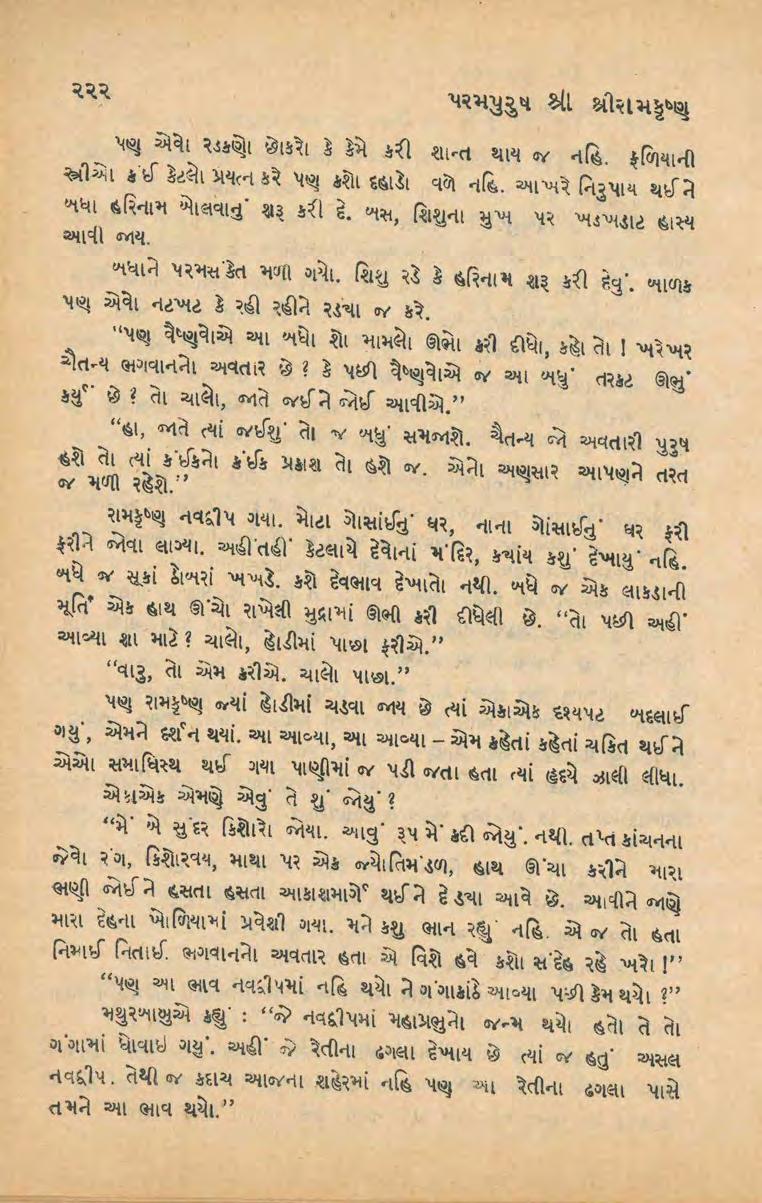 ૨૨૨
પરમપુરુષ શ્રી શ્રીરામકૃષ્ણ
પણ એવો રડકણો છોકરો કે કેમે કરી શાન્ત થાય જ નહિ. ફળિયાની
સ્ત્રીઓ કંઈ કેટલો પ્રયત્ન કરે પણ કશો દહાડો વળે નહિ. આખરે નિરુપાય થઈને
બધા હરિનામ બોલવાનું શરૂ કરી દે. બસ, શિશુના મુખ પર ખડખડાટ હાસ્ય
આવી જાય.
બધાને પરમસંકેત મળી ગયો. શિશુ રડે કે હરિનામ શરૂ કરી દેવું. બાળક
પણ એવો નટખટ કે રહી રહીને રડ્યા જ કરે.
“પણ વૈષ્ણવોએ આ બધો શો મામલો ઊભો કરી દીધો, કહો તો ! ખરેખર
ચૈતન્ય ભગવાનનો અવતાર છે ? કે પછી વૈષ્ણવોએ જ આ બધું તરકટ ઊભું
કર્યું છે ? તો ચાલો, જાતે જઈને જોઈ આવીએ.”
“હા, જાતે ત્યાં જઈશું તો જ બધું સમજાશે. ચૈતન્ય જો અવતારી પુરુષ
હશે તો ત્યાં કંઈકનો કંઈક પ્રકાશ તો હશે જ. એનો અણસાર આપણને તરત
જ મળી રહેશે.”
રામકૃષ્ણ નવદ્વીપ ગયા. મોટા ગોસાંઈનું ઘર, નાના ગોંસાઈનું ઘર ફરી
ફરીને જોવા લાગ્યા. અહીંતહીં કેટલાયે દેવોનાં મંદિર, ક્યાંય કશું દેખાયું નહિ.
બધે જ સૂકાં ઠોબરાં ખખડે. કશે દેવભાવ દેખાતો નથી. બધે જ એક લાકડાની
મૂર્તિ એક હાથ ઊંચો રાખેલી મુદ્રામાં ઊભી કરી દીધેલી છે. “તો પછી અહીં
આવ્યા શા માટે ? ચાલો, હોડીમાં પાછા ફરીએ.”
“વારુ, તો એમ કરીએ. ચાલો પાછા.”
પણ રામકૃષ્ણ જ્યાં હોડીમાં ચડવા જાય છે ત્યાં એકાએક દશ્યપટ બદલાઈ
ગયું, એમને દર્શન થયાં. આ આવ્યા, આ આવ્યા – એમ કહેતાં કહેતાં ચકિત થઈને
એઓ સમાધિસ્થ થઈ ગયા પાણીમાં જ પડી જતા હતા ત્યાં હૃદયે ઝાલી લીધા.
એકાએક એમણે એવું તે શું જોયું ?
“મેં બે સુંદર કિશોરો જોયા. આવું રૂપ મેં કદી જોયું. નથી. તપ્ત કાંચનના
જેવો રંગ, કિશોરવય, માથા પર એક જ્યોતિમંડળ, હાથ ઊંચા કરીને મારા
ભણી જોઈને હસતા હસતા આકાશમાર્ગે થઈને દેડ્યા આવે છે. આવીને જાણે
મારા દેહના ખોળિયામાં પ્રવેશી ગયા. મને કશુ ભાન રહ્યુ નહિ. એ જ તો હતા
નિમાઈ નિતાઈ. ભગવાનનો અવતાર હતા એ વિશે હવે કશો સંદેહ રહે ખરો !”
“પણ આ ભાવ નવદ્વીપમાં નહિ થયો ને ગંગાકાંઠે આવ્યા પછી કેમ થયો ?”
મથુરબાબુએ કહ્યુ : “જે નવદ્વીપમાં મહાપ્રભુનો જન્મ થયો હતો તે તો
ગંગામાં ધોવાઇ ગયું. અહીં જે રેતીના ઢગલા દેખાય છે ત્યાં જ હતું અસલ
નવદ્વીપ. તેથી જ કદાચ આજના શહેરમાં નહિ પણ આ રેતીના ઢગલા પાસે
તમને આ ભાવ થયો.”